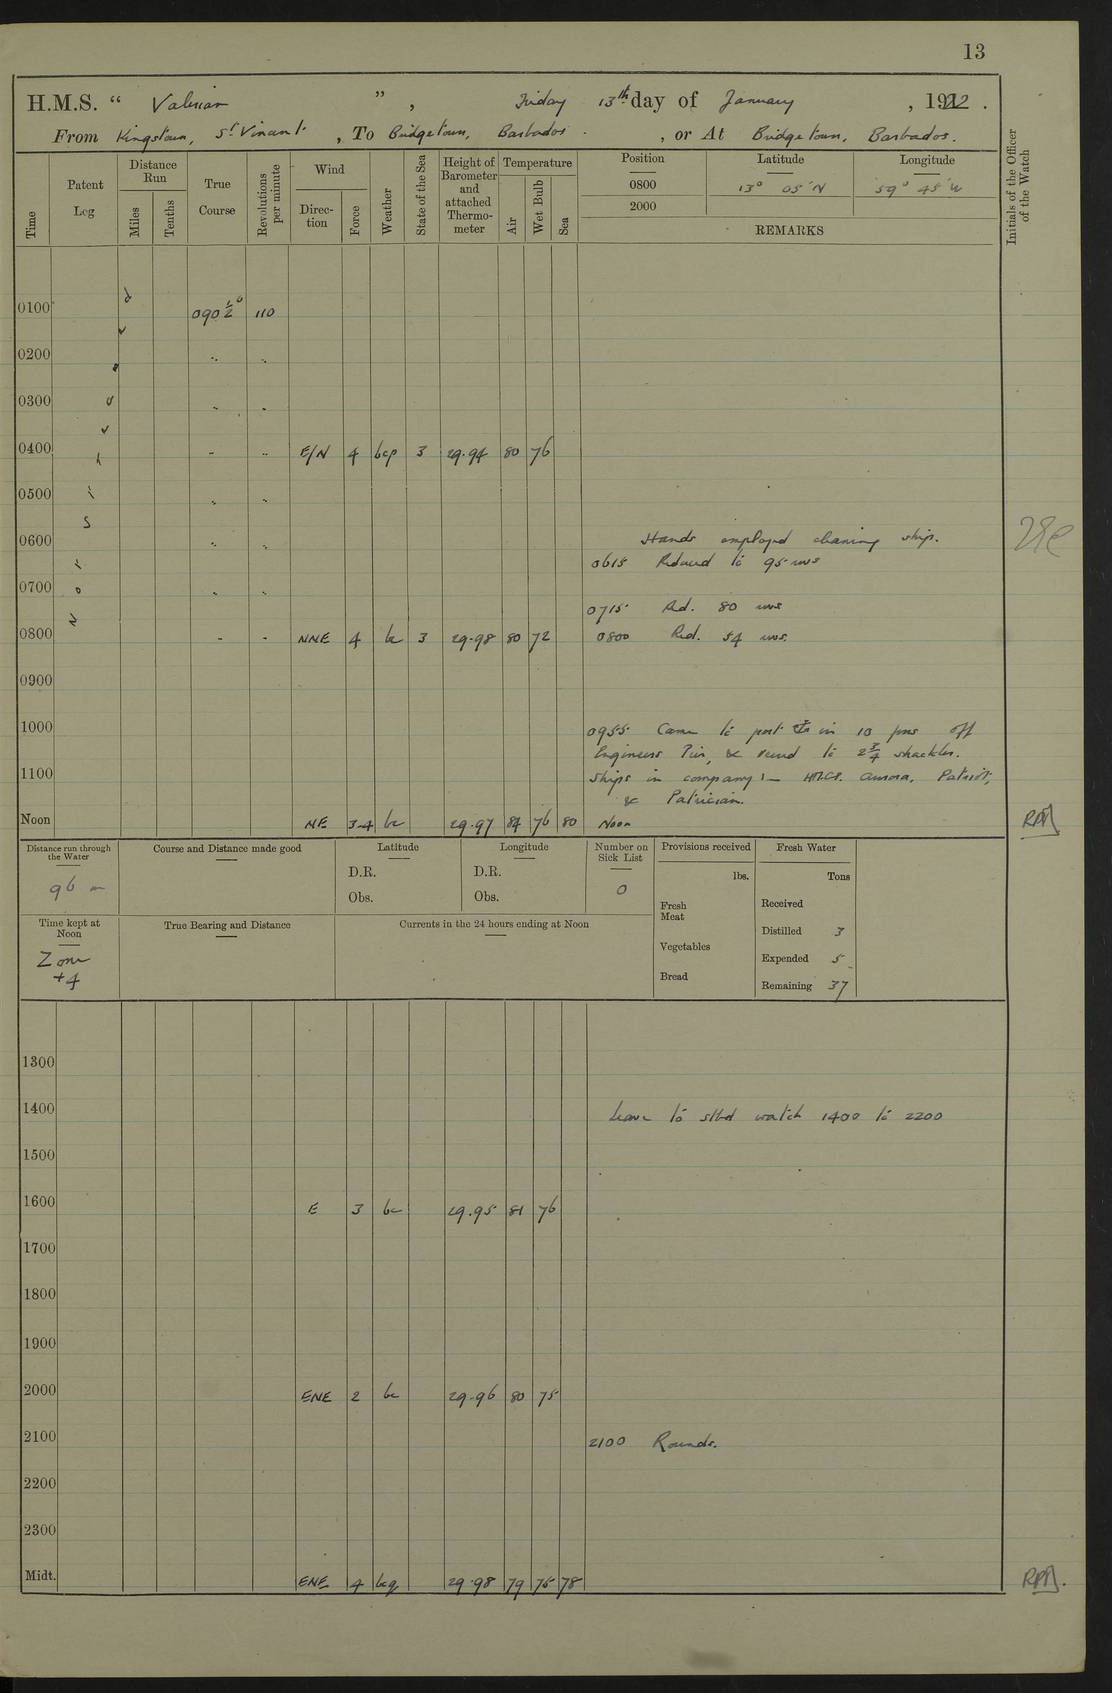 13
H.M.S. “ Valerian ” , Friday 13th day of January , 1922 .
From Kingstown, St Vincent , To Bridgetown, Barbados . , or At Bridgetown, Barbados.
Time
Patent Log
Distance Run
Miles
Tenths
True Course
Revolutions per minute
Wind
Direction
Force
Weather
State of the Sea
Height of Barometer and attached Thermometer
Temperature
Air
Wet Bulb
Sea
Position
0800
2000
Latitude
13° 05' N
Longitude
59° 45' W
REMARKS
Initials of the Officer of the Watch
0100 090 1/2° 110
0200 " "
0300 " "
0400 " " E/N 4 bcp 3 29.94 80 76
0500 " "
0600 " " Hands employed cleaning ship.
0615 Reduced to 95 revs
0700 " "
0715 Red. 80 revs
0800 " " NNE 4 bc 3 29.98 80 72 0800 Red. 54 revs.
0900
1000 0955 Came to port in 10 fms off
Engineers Pier, & veered to 2 3/4 shackles.
1100 Ships in company :- HMCS. Aurora, Patriot,
& Patrician.
Noon NE 3-4 bc 29.97 84 76 80 Noon
Distance run through the Water
96
Course and Distance made good
Latitude
D.R.
Obs.
Longitude
D.R.
Obs.
Number on Sick List
0
Provisions received
lbs.
Fresh Meat
Vegetables
Bread
Fresh Water
Tons
Received
Distilled 3
Expended 5
Remaining 37
Time kept at Noon
Zone +4
True Bearing and Distance
Currents in the 24 hours ending at Noon
1300
1400 Leave to stbd watch 1400 to 2200
1500
1600 E 3 bc 29.95 81 76
1700
1800
1900
2000 ENE 2 bc 29.96 80 75
2100 2100 Rounds.
2200
2300
Midt. ENE 4 bcq 29.98 79 75 78